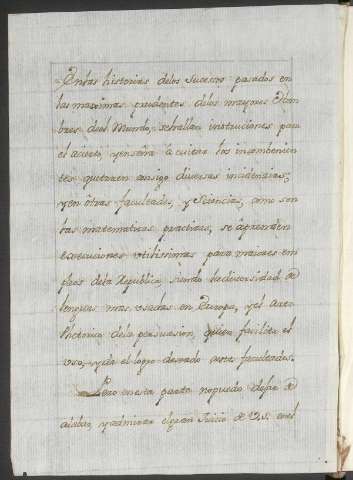 En las historias de los sucesos pasados en
las maximas prudentes de los mayores Hom
bres del Mundo, se hallan instruciones para
el acierto, y enseña â evitar los incombenien
tes que traen consigo diversas incidencias;
y en ótras facultades, y Sciencias, como son
las matematicas practicas, se âprenden
execuciones utilissimas para maiores em
pleos de la Republica, siendo la diversidad de
lenguas mas usadas en Europa, y el Arte
Rhetorica de la persuasion, quien facilita el
uso, y da el logro deseado a estas facultades.
Pero en esta parte no puedo dejar de
alabar, y admirar el gran Juicio de V.S. en el